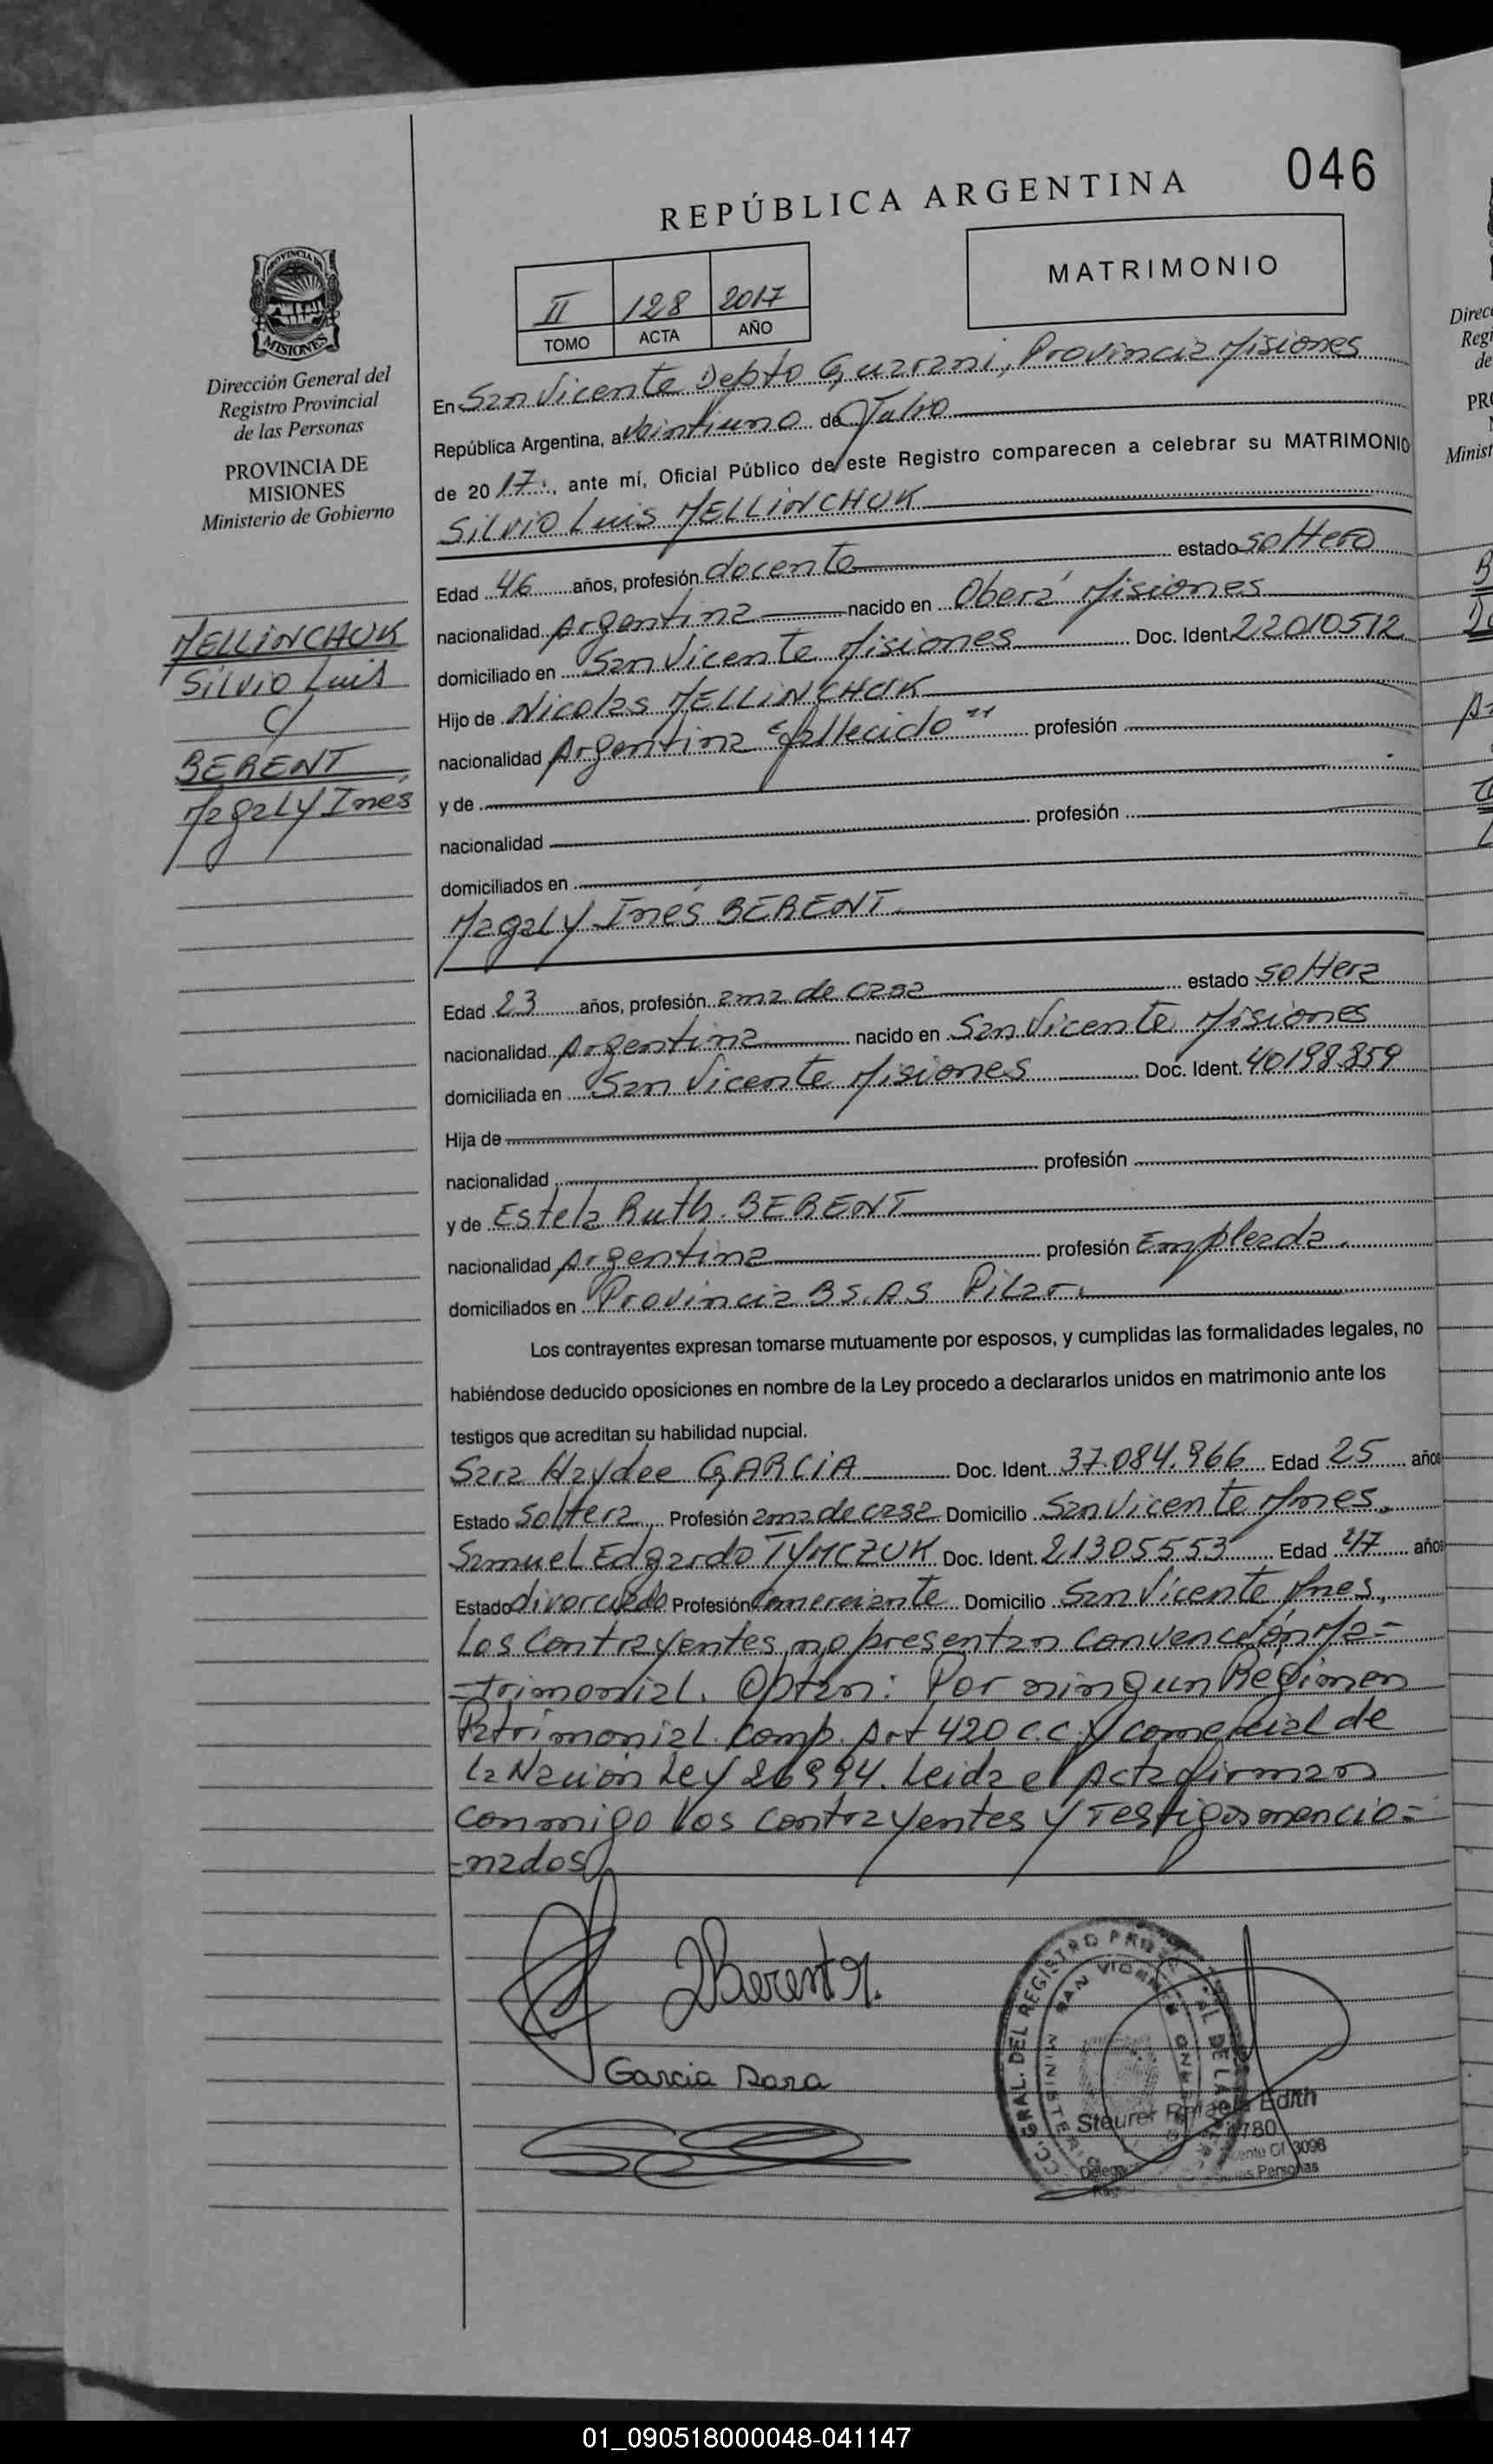 046
REPÚBLICA ARGENTINA
MATRIMONIO
II 128 2017
TOMO ACTA AÑO
PROVINCIA DE
MISIONES
Dirección General del
Registro Provincial
de las Personas
PROVINCIA DE
MISIONES
Ministerio de Gobierno
MELLiNCHUK
Silvio Luis
c/
BERENT
Magaly Ines
En San Vicente Depto Guarani, Provincia Misiones
República Argentina, a veintiuno de Julio
de 20 17., ante mí, Oficial Público de este Registro comparecen a celebrar su MATRIMONIO
Silvio Luis MELLiNCHUK
Edad 46 años, profesión docente estado soltero
nacionalidad Argentina nacido en Oberá Misiones
domiciliado en San Vicente Misiones Doc. Ident. 22010512
Hijo de Nicolas MELLiNCHUK
nacionalidad Argentina "fallecido" profesión
y de
nacionalidad profesión
domiciliados en
Magaly Inés BERENT.
Edad 23 años, profesión ama de casa estado soltera
nacionalidad Argentina nacido en San Vicente Misiones
domiciliada en San Vicente Misiones Doc. Ident. 40198.859
Hija de
nacionalidad profesión
y de Estela Ruth BERENT
nacionalidad Argentina profesión Empleada.
domiciliados en Provincia BS.AS Pilar.
Los contrayentes expresan tomarse mutuamente por esposos, y cumplidas las formalidades legales, no
habiéndose deducido oposiciones en nombre de la Ley procedo a declararlos unidos en matrimonio ante los
testigos que acreditan su habilidad nupcial.
Sara Haydee GARCiA Doc. Ident. 37.084.966 Edad 25 años
Estado Soltera Profesión ama de casa Domicilio San Vicente Mnes.
Samuel Edgardo TYMCZUK Doc. Ident. 21305553 Edad 47 años
Estado divorciado Profesión Comerciante Domicilio San Vicente Mnes,
Los Contrayentes no presentan convención Ma=
=trimonial. Optan: Por ningun Regimen
Patrimonial. Comp. Art 420 C.C. y comercial de
la Nación Ley 26994. Leida el Acta firman
conmigo los contrayentes y Testigos mencio=
=nados
Berent M.
Garcia Sara
GRAL. DEL REGISTRO
SAN VICENTE
MINISTERIO
Steurer Rafaela Edith
780
3098
Personas
01_090518000048-041147